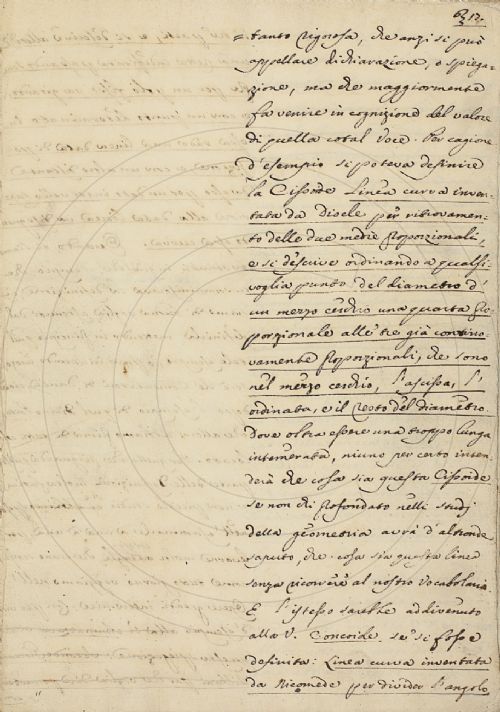 617.
= tanto rigorosa, che anzi si può
appellare dichiarazione, o spiega-
zione, ma che maggiormente
fa venire in cognizione del valore
di quella cotal voce. Per cagione
d'esempio si poteva definire
la Cissoide Linea curva inven-
tata da Diocle per ritrovamen-
to delle due medie proporzionali,
e si descrive ordinando a qualsi-
voglia punto del diametro d'
un mezzo cerchio una quarta pro-
porzionale alle tre già continuo-
vamente proporzionali, che sono
nel mezzo cerchio, l'ascissa, l'
ordinata, e il resto del diametro.
Dove oltre essere una troppo lunga
intemerata, niuno per certo inten-
derà che cosa sia questa Cissoide
se non chi profondato nelli studj
della geometria avrà d'altronde
saputo, che cosa sia questa linea
senza ricorrere al nostro Vocabolario.
E l'istesso sarebbe addivenuto
alla V. Concoide se si fosse
definita: Linea curva inventata
da Nicomede per divider l'angolo